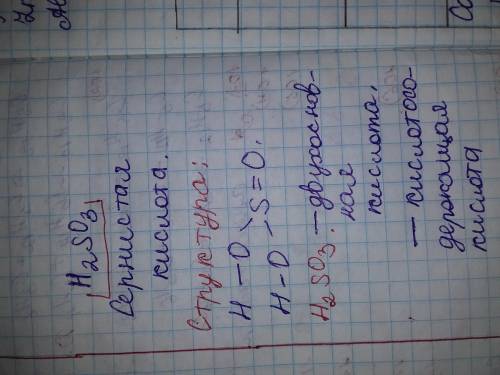 H2SO3
Сернистая
кислота.
Структура:
H — O
S = O.
H - O
H2SO3. — двухоснов-
ная
кислота,
— кислотосо-
держащая
кислота